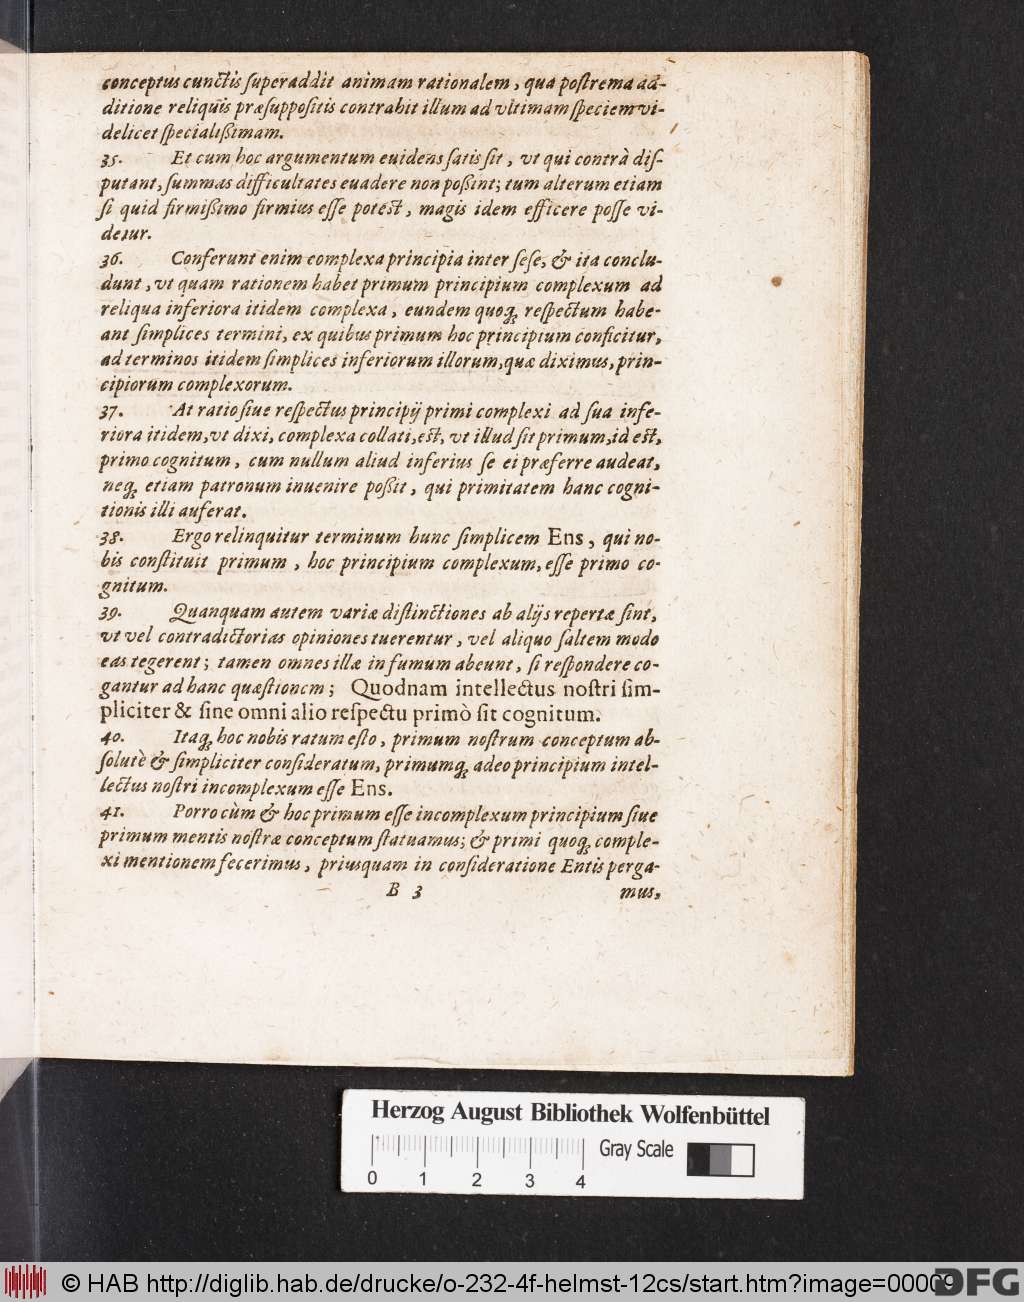 conceptus cunctis ſuperaddit animam rationalem, qua poſtrema ad-
ditione reliquis præſuppoſitis contrahit illum ad vltimam ſpeciem vi-
delicet ſpecialißimam.
35. Et cum hoc argumentum euidens ſatis ſit, vt qui contrà diſ-
putant, ſummas difficultates euadere non poßint; tum alterum etiam
ſi quid firmißimo firmius eſſe poteſt, magis idem efficere poſſe vi-
detur.
36. Conferunt enim complexa principia inter ſeſe, & ita conclu-
dunt, vt quam rationem habet primum principium complexum ad
reliqua inferiora itidem complexa, eundem quoq; reſpectum habe-
ant ſimplices termini, ex quibus primum hoc principium conficitur,
ad terminos itidem ſimplices inferiorum illorum, quæ diximus, prin-
cipiorum complexorum.
37. At ratio ſiue reſpectus principij primi complexi ad ſua infe-
riora itidem, vt dixi, complexa collati, eſt, vt illud ſit primum, id eſt,
primo cognitum, cum nullum aliud inferius ſe ei præferre audeat,
neq; etiam patronum inuenire poßit, qui primitatem hanc cogni-
tionis illi auferat.
38. Ergo relinquitur terminum hunc ſimplicem Ens, qui no-
bis conſtituit primum, hoc principium complexum, eſſe primo co-
gnitum.
39. Quanquam autem variæ diſtinctiones ab alijs repertæ ſint,
vt vel contradictorias opiniones tuerentur, vel aliquo ſaltem modo
eas tegerent; tamen omnes illæ in fumum abeunt, ſi reſpondere co-
gantur ad hanc quæſtionem; Quodnam intellectus noſtri ſim-
pliciter & ſine omni alio reſpectu primò ſit cognitum.
40. Itaq; hoc nobis ratum eſto, primum noſtrum conceptum ab-
ſolutè & ſimpliciter conſideratum, primumq; adeo principium intel-
lectus noſtri incomplexum eſſe Ens.
41. Porro cùm & hoc primum eſſe incomplexum principium ſiue
primum mentis noſtræ conceptum ſtatuamus; & primi quoq; comple-
xi mentionem fecerimus, priusquam in conſideratione Entis perga-
B 3 mus,
Herzog August Bibliothek Wolfenbüttel
Gray Scale
0 1 2 3 4
© HAB http://diglib.hab.de/drucke/o-232-4f-helmst-12cs/start.htm?image=00009
DFG